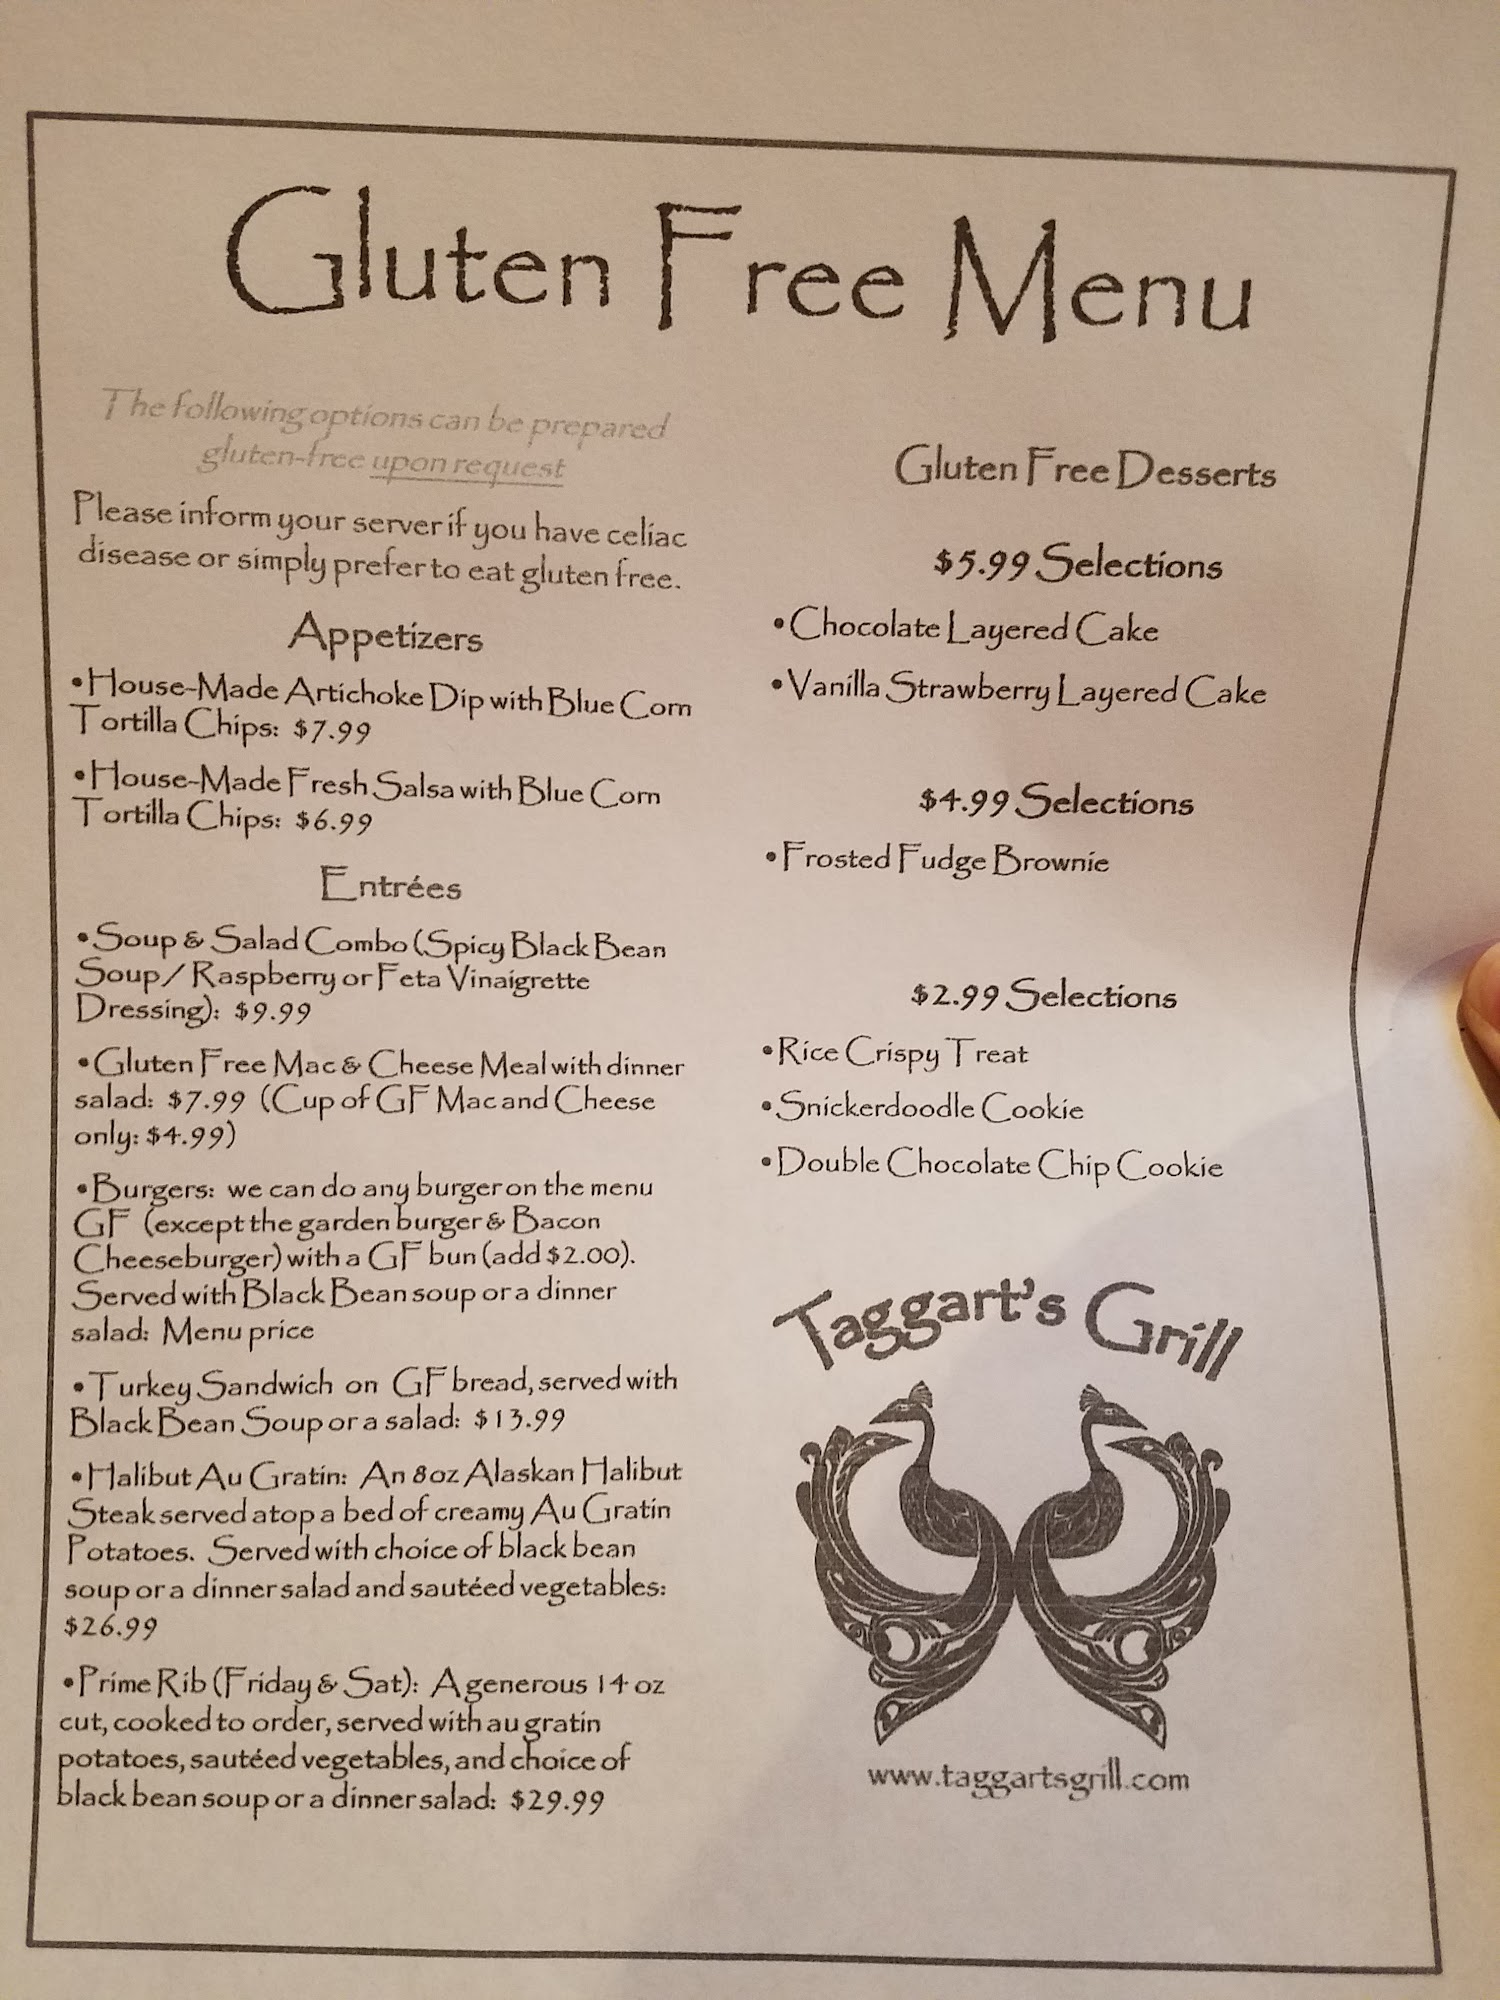 Gluten Free Menu
The following options can be prepared
gluten-free upon request
Please inform your server if you have celiac
disease or simply prefer to eat gluten free.
Appetizers
•House-Made Artichoke Dip with Blue Corn
Tortilla Chips: $7.99
•House-Made Fresh Salsa with Blue Corn
Tortilla Chips: $6.99
Entrées
•Soup & Salad Combo (Spicy Black Bean
Soup/ Raspberry or Feta Vinaigrette
Dressing): $9.99
•Gluten Free Mac & Cheese Meal with dinner
salad: $7.99 (Cup of GF Mac and Cheese
only: $4.99)
•Burgers: we can do any burger on the menu
GF (except the garden burger & Bacon
Cheeseburger) with a GF bun (add $2.00).
Served with Black Bean soup or a dinner
salad: Menu price
•Turkey Sandwich on GF bread, served with
Black Bean Soup or a salad: $13.99
•Halibut Au Gratin: An 8oz Alaskan Halibut
Steak served atop a bed of creamy Au Gratin
Potatoes. Served with choice of black bean
soup or a dinner salad and sautéed vegetables:
$26.99
•Prime Rib (Friday & Sat): A generous 14 oz
cut, cooked to order, served with au gratin
potatoes, sautéed vegetables, and choice of
black bean soup or a dinner salad: $29.99
Gluten Free Desserts
$5.99 Selections
•Chocolate Layered Cake
•Vanilla Strawberry Layered Cake
$4.99 Selections
•Frosted Fudge Brownie
$2.99 Selections
•Rice Crispy Treat
•Snickerdoodle Cookie
•Double Chocolate Chip Cookie
Taggart's Grill
www.taggartsgrill.com